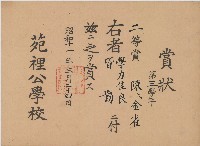 賞狀
第三學年
二等賞 陳氏金雀
右者學力佳良
茲ニ之ヲ賞ス
昭和十一年三月
苑裡公學校